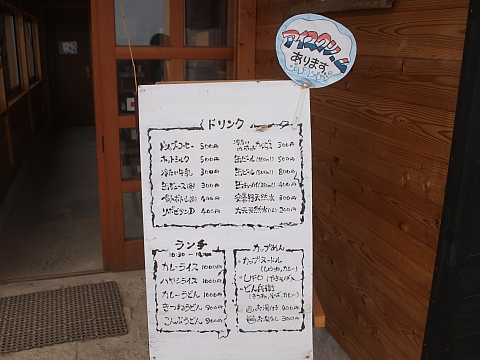 アイスクリーム
あります。
ドリンク
ドリップコーヒー 500円
ホットミルク 500円
冷たい牛乳 300円
缶ジュース 300円
400円
リポビタンD 400円
500円
缶ビール 500円
缶ビール 800円
400円
天然水 300円
天然水 200円
ランチ
カレーライス 1000円
ハヤシライス 1000円
カレーうどん 1000円
きつねうどん 900円
こんぶうどん 900円
カップめん
・カップヌードル
(しょうゆ、カレー)
・UFO
・どん兵衛
お湯付 400円
お湯なし 300円